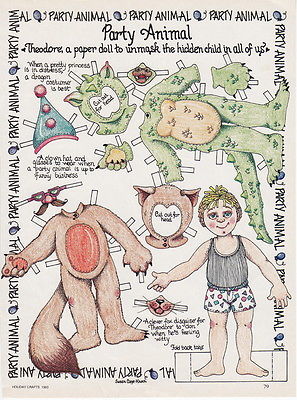 PARTY ANIMAL PARTY ANIMAL PARTY ANIMAL
Party Animal
"Theodore, a paper doll to unmask the hidden child in all of us"
When a pretty princess
is in distress,
a dragon
costume
is best
Cut out
for head
A clown hat and
glasses to wear when
a "party animal" is up to
funny business
Cut out for
head
A clever fox disguise for
Theodore to don
when he's feeling
witty
Fold back tabs
PARTY ANIMAL PARTY ANIMAL PARTY ANIMAL PARTY ANIMAL
PARTY ANIMAL PARTY ANIMAL PARTY ANIMAL PARTY ANIMAL
HOLIDAY CRAFTS 1993
79